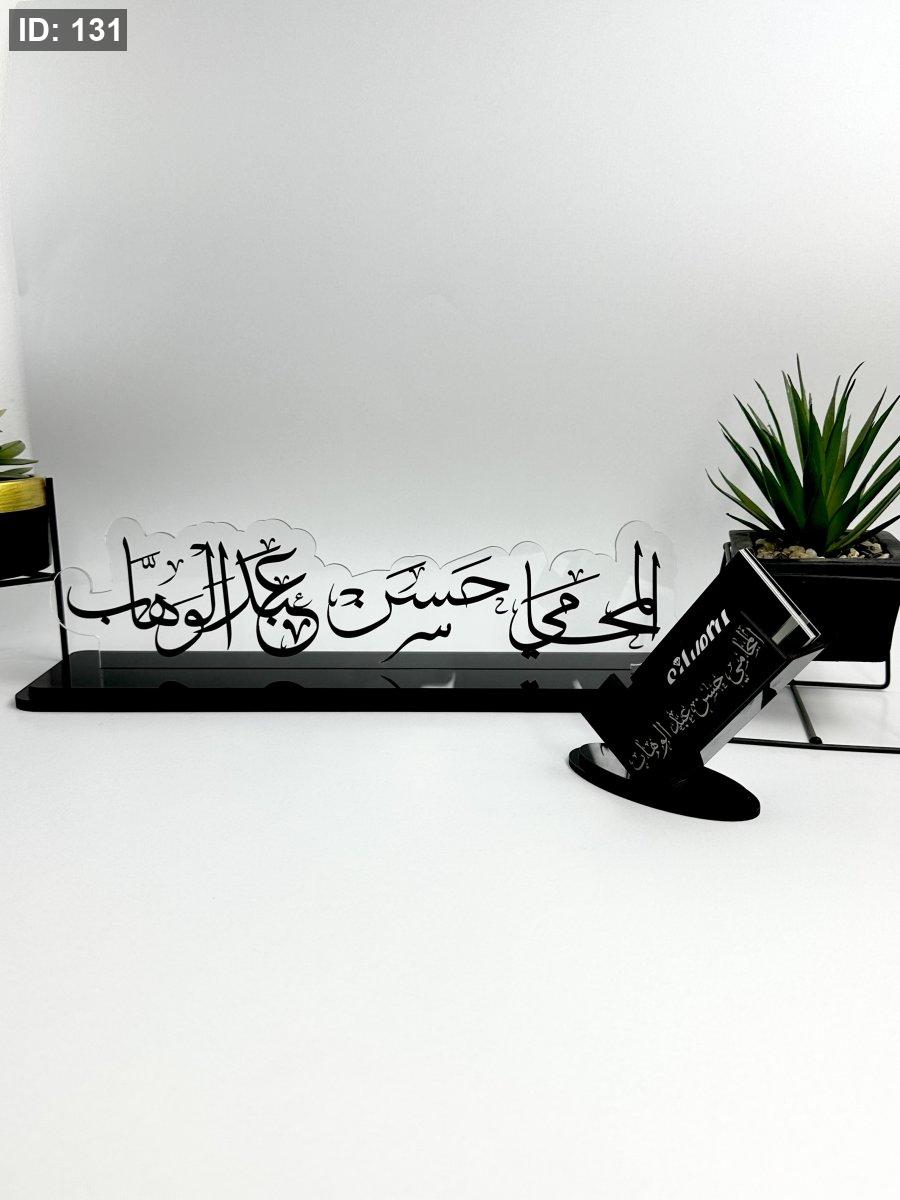 ID: 131
المحامي حسن عبد الوهاب
المحامي حسن عبد الوهاب